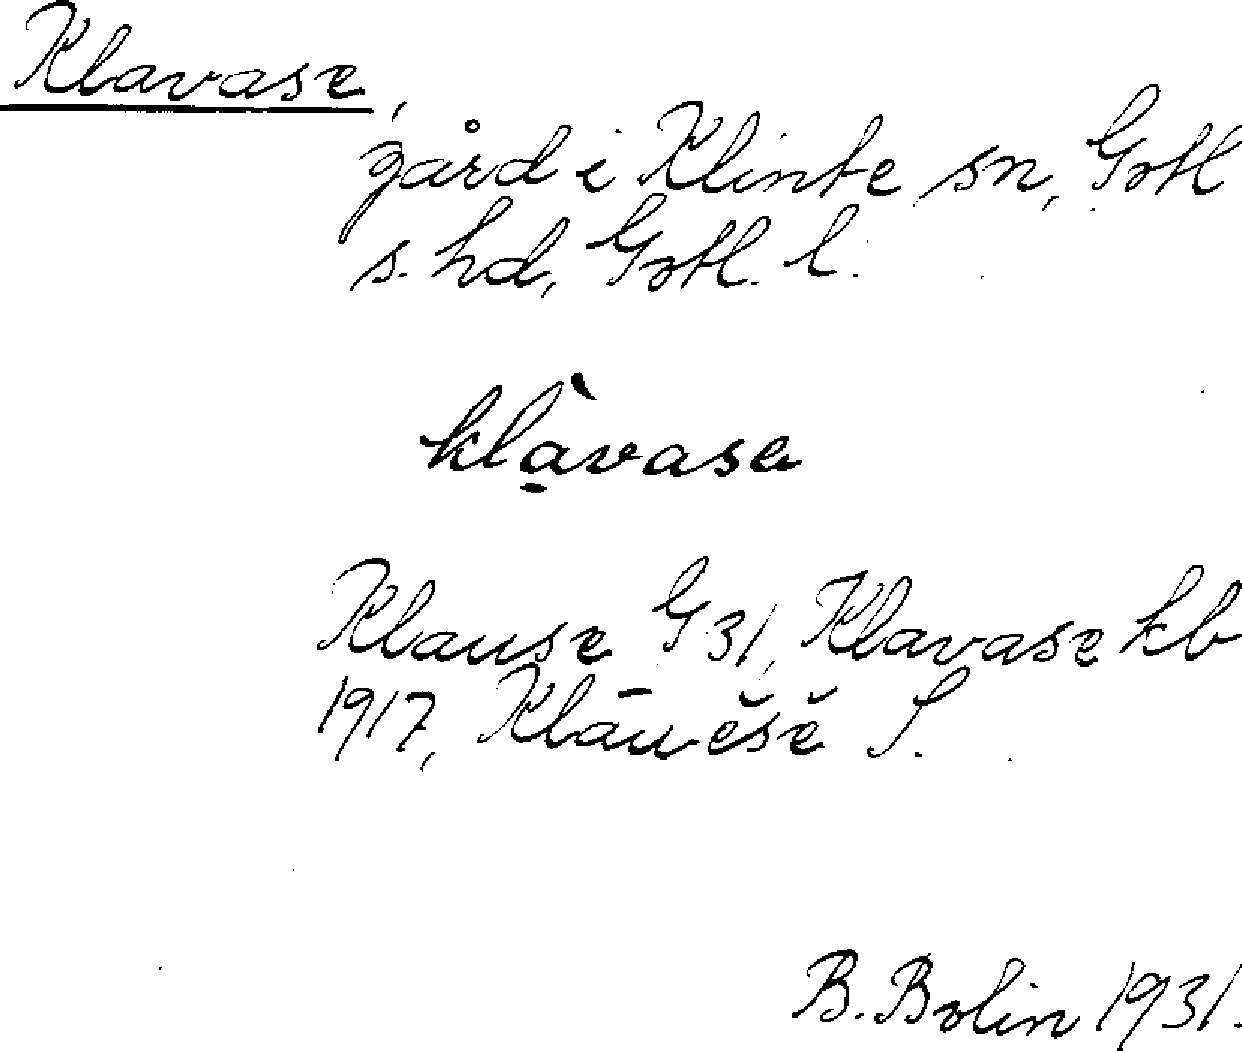 Klavase,
gård i Klinte sn, Gotl
s. hd, Gotl. l.
klà̱vasa
Klause G 31, Klavase kb
1917, Klāuĕsĕ S.
B. Bolin 1931.